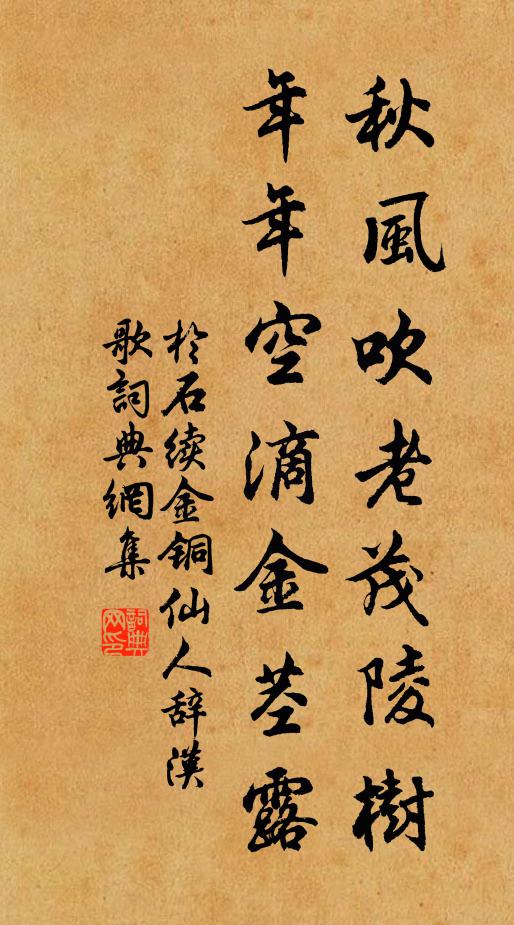 秋風吹老茂陵樹
年年空滴金茎露
於石续金铜仙人辞漢
歌詞典網集
詞典
网印